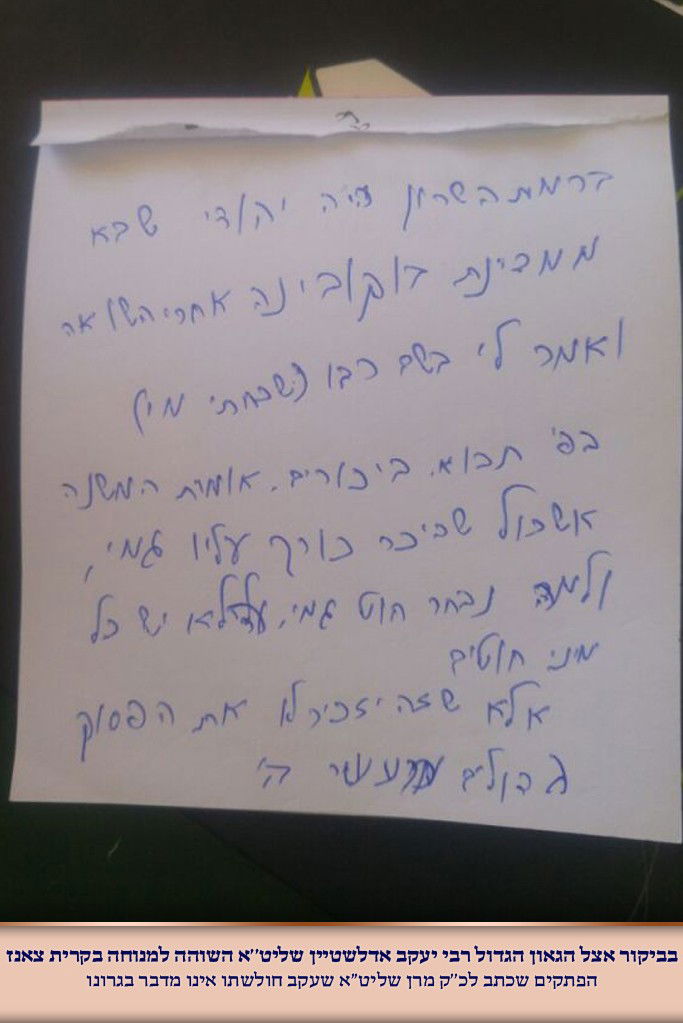 ברמת השרון היה יהודי שבא
ממדינת בוקובינה אחרי השואה
ואמר לי בשם רבו (שכחתי מי)
בפ' תבוא. ביכורים. אומרת המשנה
אשכול שביכר כורך עליו גמי,
ולמה נבחר חוט גמי. הלא יש כל
מיני חוטים
אלא שזה יזכיר לו את הפסוק
גדולים מעשי ה'
בביקור אצל הגאון הגדול רבי יעקב אדלשטיין שליט''א השוהה למנוחה בקרית צאנז
הפתקים שכתב לכ"ק מרן שליט"א שעקב חולשתו אינו מדבר בגרונו